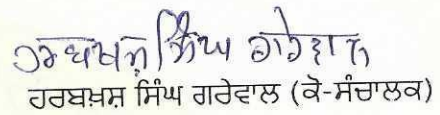 ਹਰਬਖਸ਼ ਸਿੰਘ ਗਰੇਵਾਲ
ਹਰਬਖ਼ਸ਼ ਸਿੰਘ ਗਰੇਵਾਲ (ਕੋ-ਸੰਚਾਲਕ)